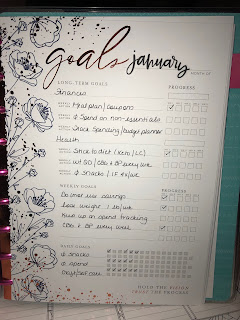 goals january
MONTH OF
LONG-TERM GOALS
PROGRESS
Finances
Meal plan / coupons
$ Spend on non-essentials
Track Spending/budget planner
Health
Stick to diet (Keto / LC)
wt
CBG + BP every wk
∅ Snacks / IF 4x/wk
WEEKLY GOALS
PROGRESS
savings
Lose weight 1 lb/wk
Keep up on spend tracking
CBG + BP every week
DAILY GOALS
∅ Snacks
∅ spend
self care
HOLD THE VISION
TRUST THE PROCESS